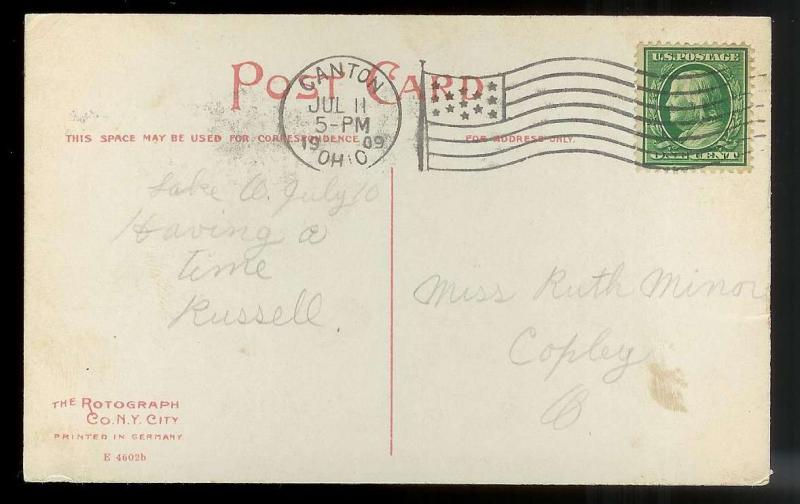 POST CARD
CANTON
JUL 11
5-PM
1909
OHIO
U.S. POSTAGE
ONE CENT
THIS SPACE MAY BE USED FOR CORRESPONDENCE
FOR ADDRESS ONLY.
Lake O. July 10
Having a
time
Russell.
Miss Ruth Minor
Copley
O
THE ROTOGRAPH
CO. N.Y. CITY
PRINTED IN GERMANY
E 4602b